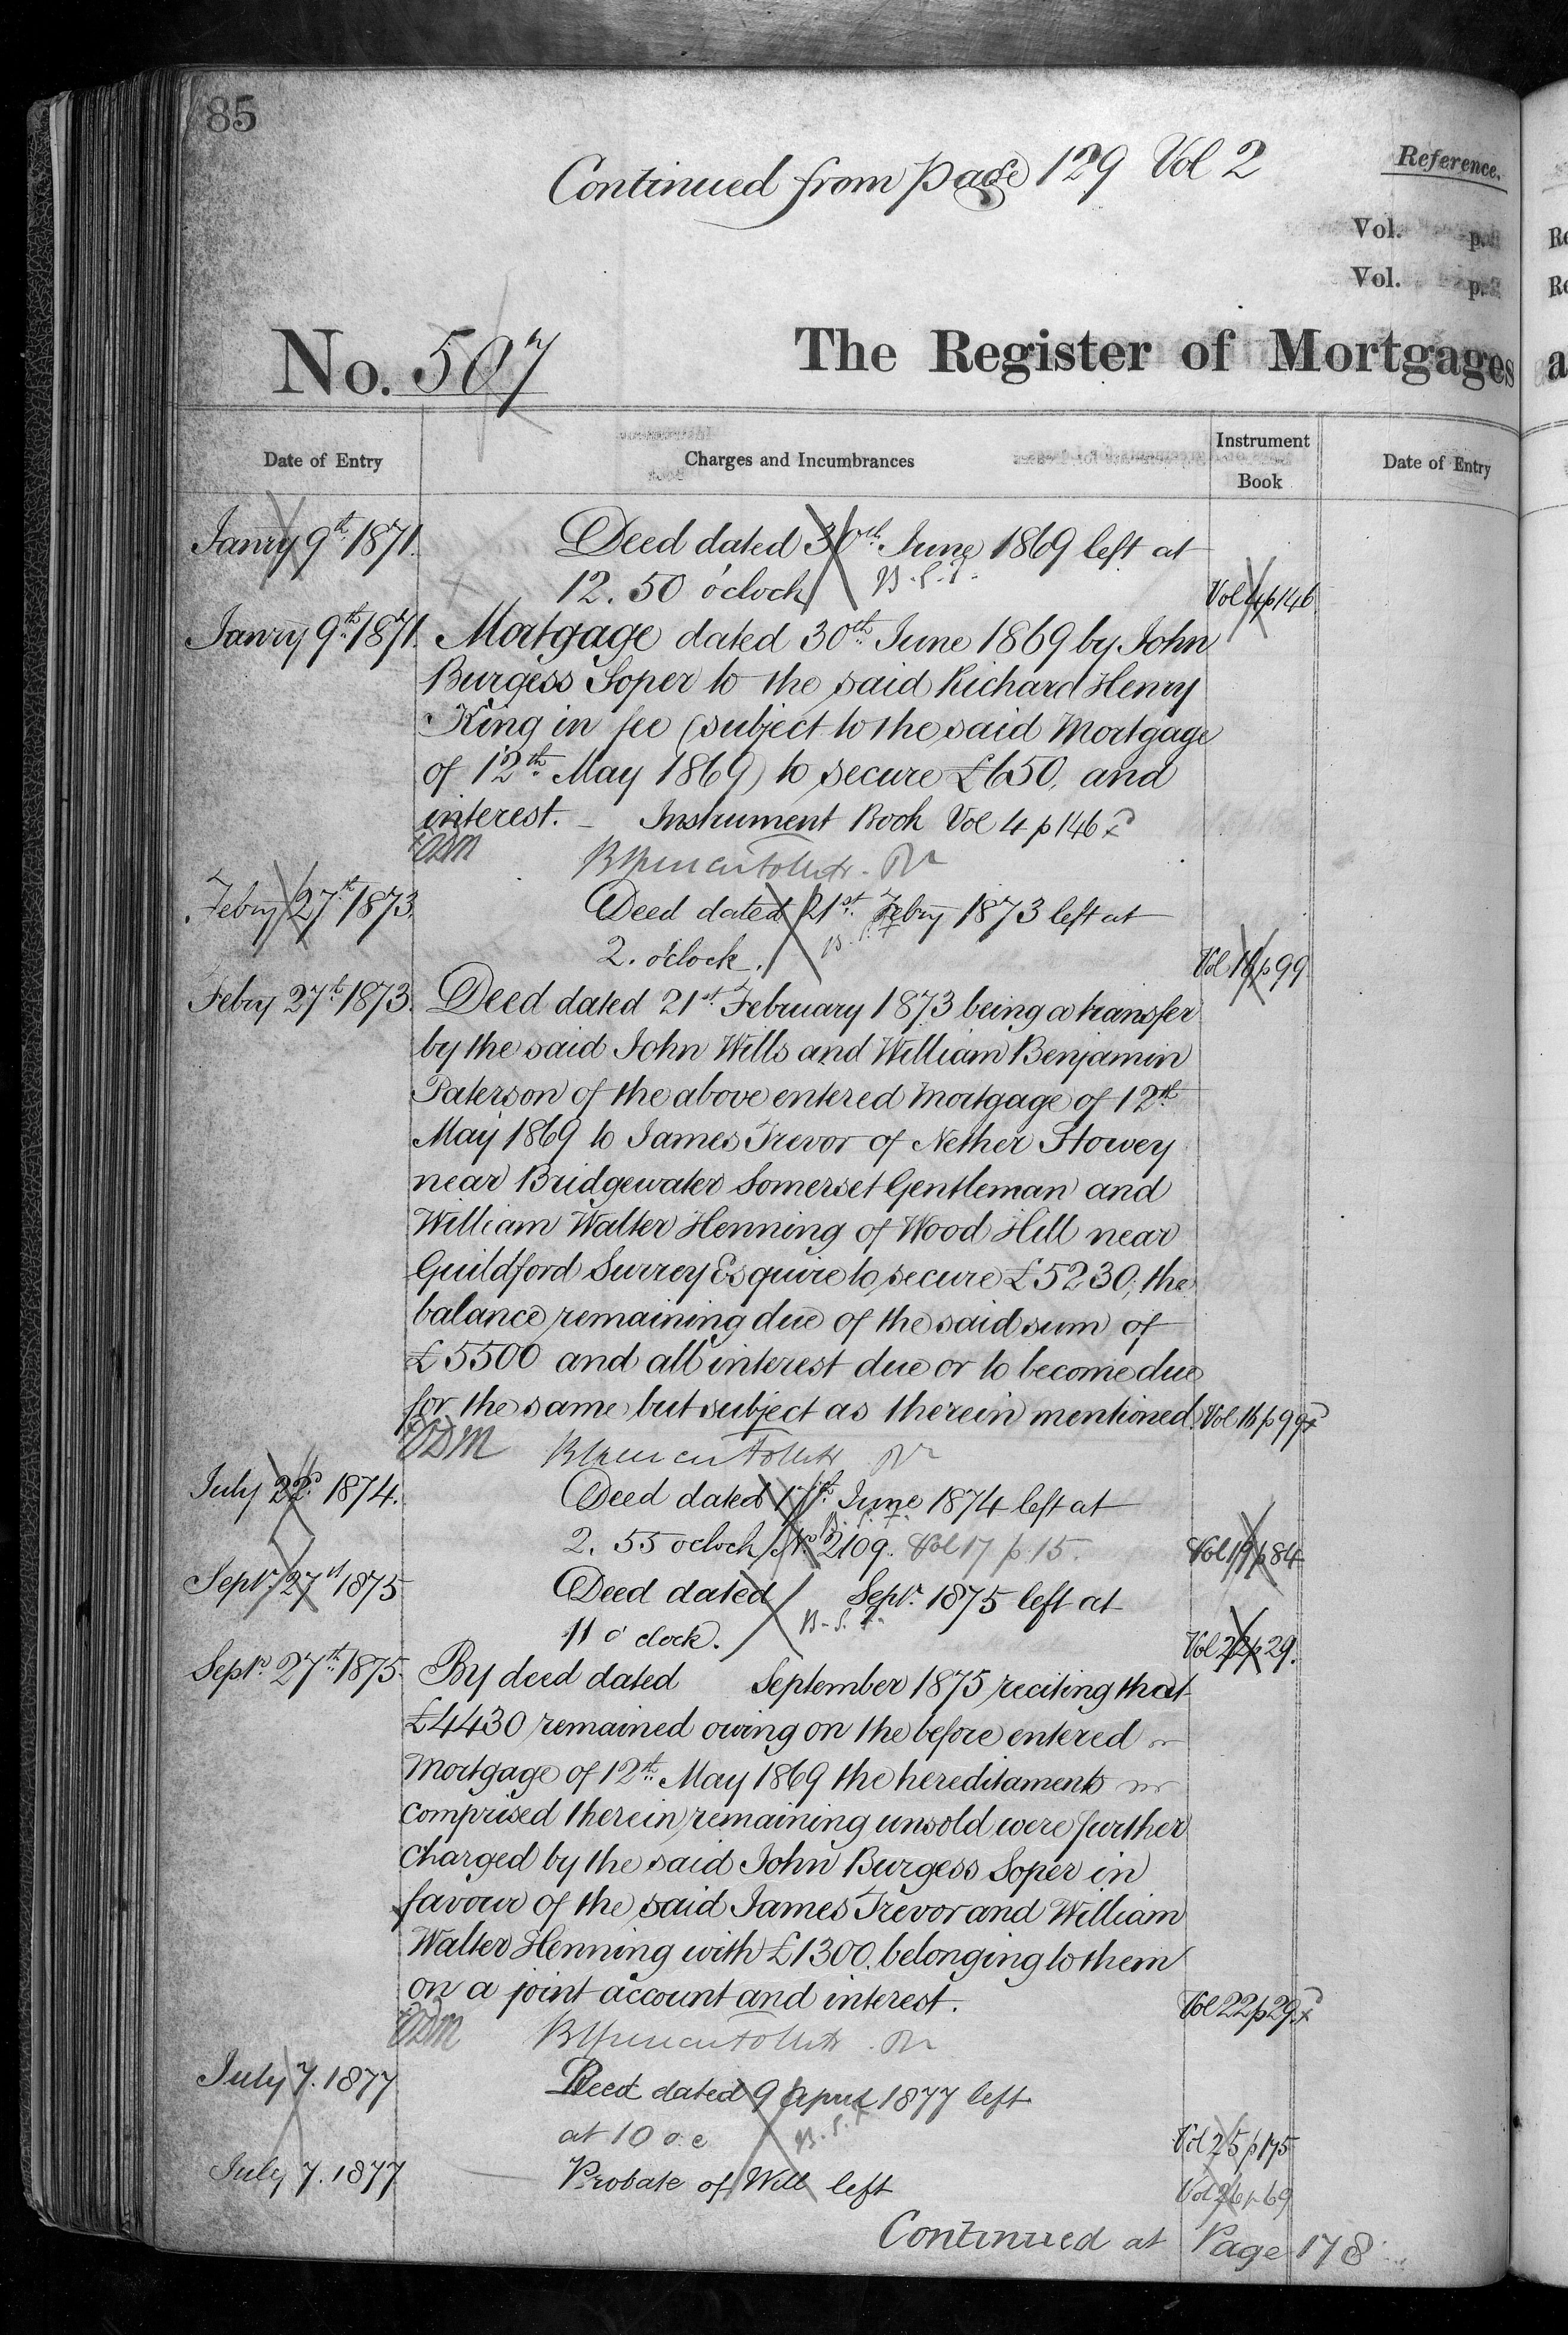 85
Continued from page 129 Vol 2
Reference.
Vol. p.
Vol. p.
No. 507 The Register of Mortgages
Date of Entry Charges and Incumbrances Instrument Book Date of Entry
Janry 9th 1871. Deed dated 30th June 1869 left at
12. 50 o'clock B.S.T. Vol 4 p 146
Janry 9th 1871. Mortgage dated 30th June 1869 by John
Burgess Soper to the said Richard Henry
King in fee (subject to the said Mortgage
of 12th May 1869) to secure £650, and
interest. – Instrument Book Vol 4 p 146
Febry 27th 1873. Deed dated 21st Febry 1873 left at
2. o'clock. Vol 16 p 99
Febry 27th 1873. Deed dated 21st February 1873 being a transfer
by the said John Wills and William Benjamin
Paterson of the above entered Mortgage of 12th
May 1869 to James Trevor of Nether Stowey
near Bridgewater Somerset Gentleman and
William Walter Henning of Wood Hill near
Guildford Surrey Esquire to secure £5230, the
balance remaining due of the said sum of
£5500 and all interest due or to become due
for the same but subject as therein mentioned. Vol 16 p 99
July 22d 1874. Deed dated 17th June 1874 left at
2. 55 oclock No 2109. Vol 17 p. 15. Vol 19 p 84
Septr 27th 1875 Deed dated Septr 1875 left at
11 o'clock. B.S.T. Vol 22 p 29.
Septr 27th 1875. By deed dated September 1875 reciting that
£4430 remained owing on the before entered
Mortgage of 12th May 1869 the hereditaments
comprised therein remaining unsold were further
charged by the said John Burgess Soper in
favour of the said James Trevor and William
Walter Henning with £1300. belonging to them
on a joint account and interest. Vol 22 p 29
July 7. 1877 Deed dated 9 April 1877 left
at 10 o.c B.S.T. Vol 25 p 175
July 7. 1877 Probate of Will left Vol 26 p 69
Continued at Page 178